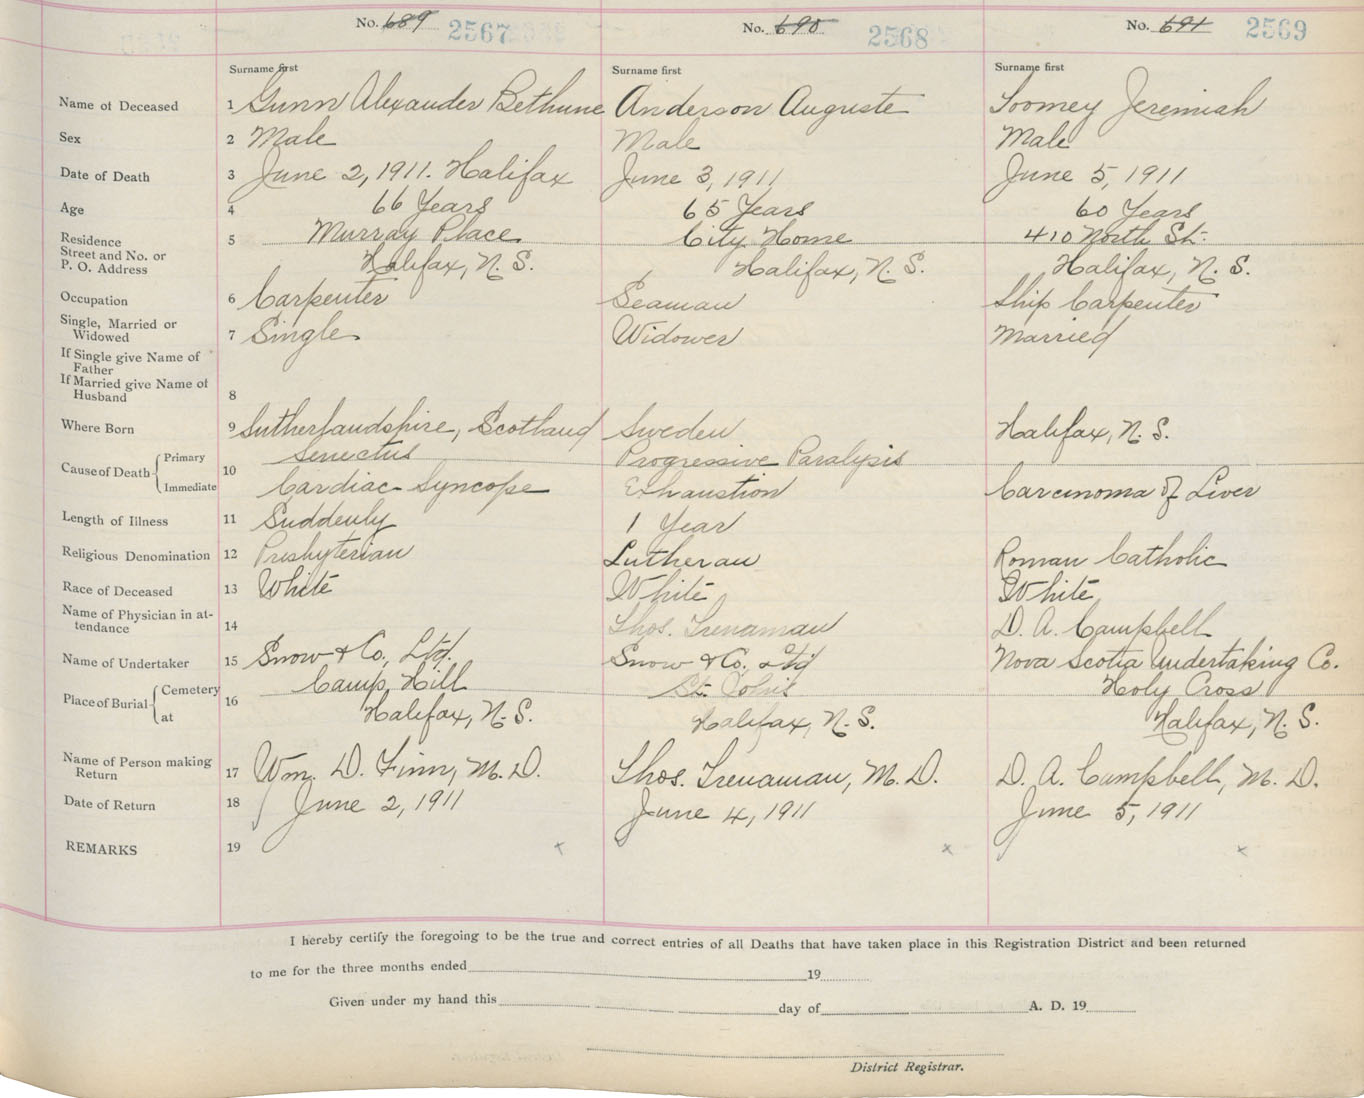 No. 689 2567 No. 690 2568 No. 691 2569
Surname first Surname first Surname first
Name of Deceased 1 Gunn Alexander Bethune Anderson Auguste Toomey Jeremiah
Sex 2 Male Male Male
Date of Death 3 June 2, 1911. Halifax June 3, 1911 June 5, 1911
Age 4 66 Years 65 Years 60 Years
Residence 5 Murray Place City Home 410 North St.
Street and No. or
P. O. Address Halifax, N. S. Halifax, N. S. Halifax, N. S.
Occupation 6 Carpenter Seaman Ship Carpenter
Single, Married or
Widowed 7 Single Widower Married
If Single give Name of
Father
If Married give Name of
Husband 8
Where Born 9 Sutherlandshire, Scotland Sweden Halifax, N. S.
Cause of Death Primary 10 Senectus Progressive Paralysis
Immediate Cardiac Syncope Exhaustion Carcinoma of Liver
Length of Illness 11 Suddenly 1 Year
Religious Denomination 12 Presbyterian Lutheran Roman Catholic
Race of Deceased 13 White White White
Name of Physician in at-
tendance 14 Thos. Trenaman D. A. Campbell
Name of Undertaker 15 Snow & Co, Ltd. Snow & Co, Ltd Nova Scotia Undertaking Co.
Place of Burial Cemetery 16 Camp Hill St. John's Holy Cross
at Halifax, N. S. Halifax, N. S. Halifax, N. S.
Name of Person making
Return 17 Wm. D. Finn, M. D. Thos. Trenaman, M. D. D. A. Campbell, M. D.
Date of Return 18 June 2, 1911 June 4, 1911 June 5, 1911
REMARKS 19 x x x
I hereby certify the foregoing to be the true and correct entries of all Deaths that have taken place in this Registration District and been returned
to me for the three months ended 19
Given under my hand this day of A. D. 19
District Registrar.